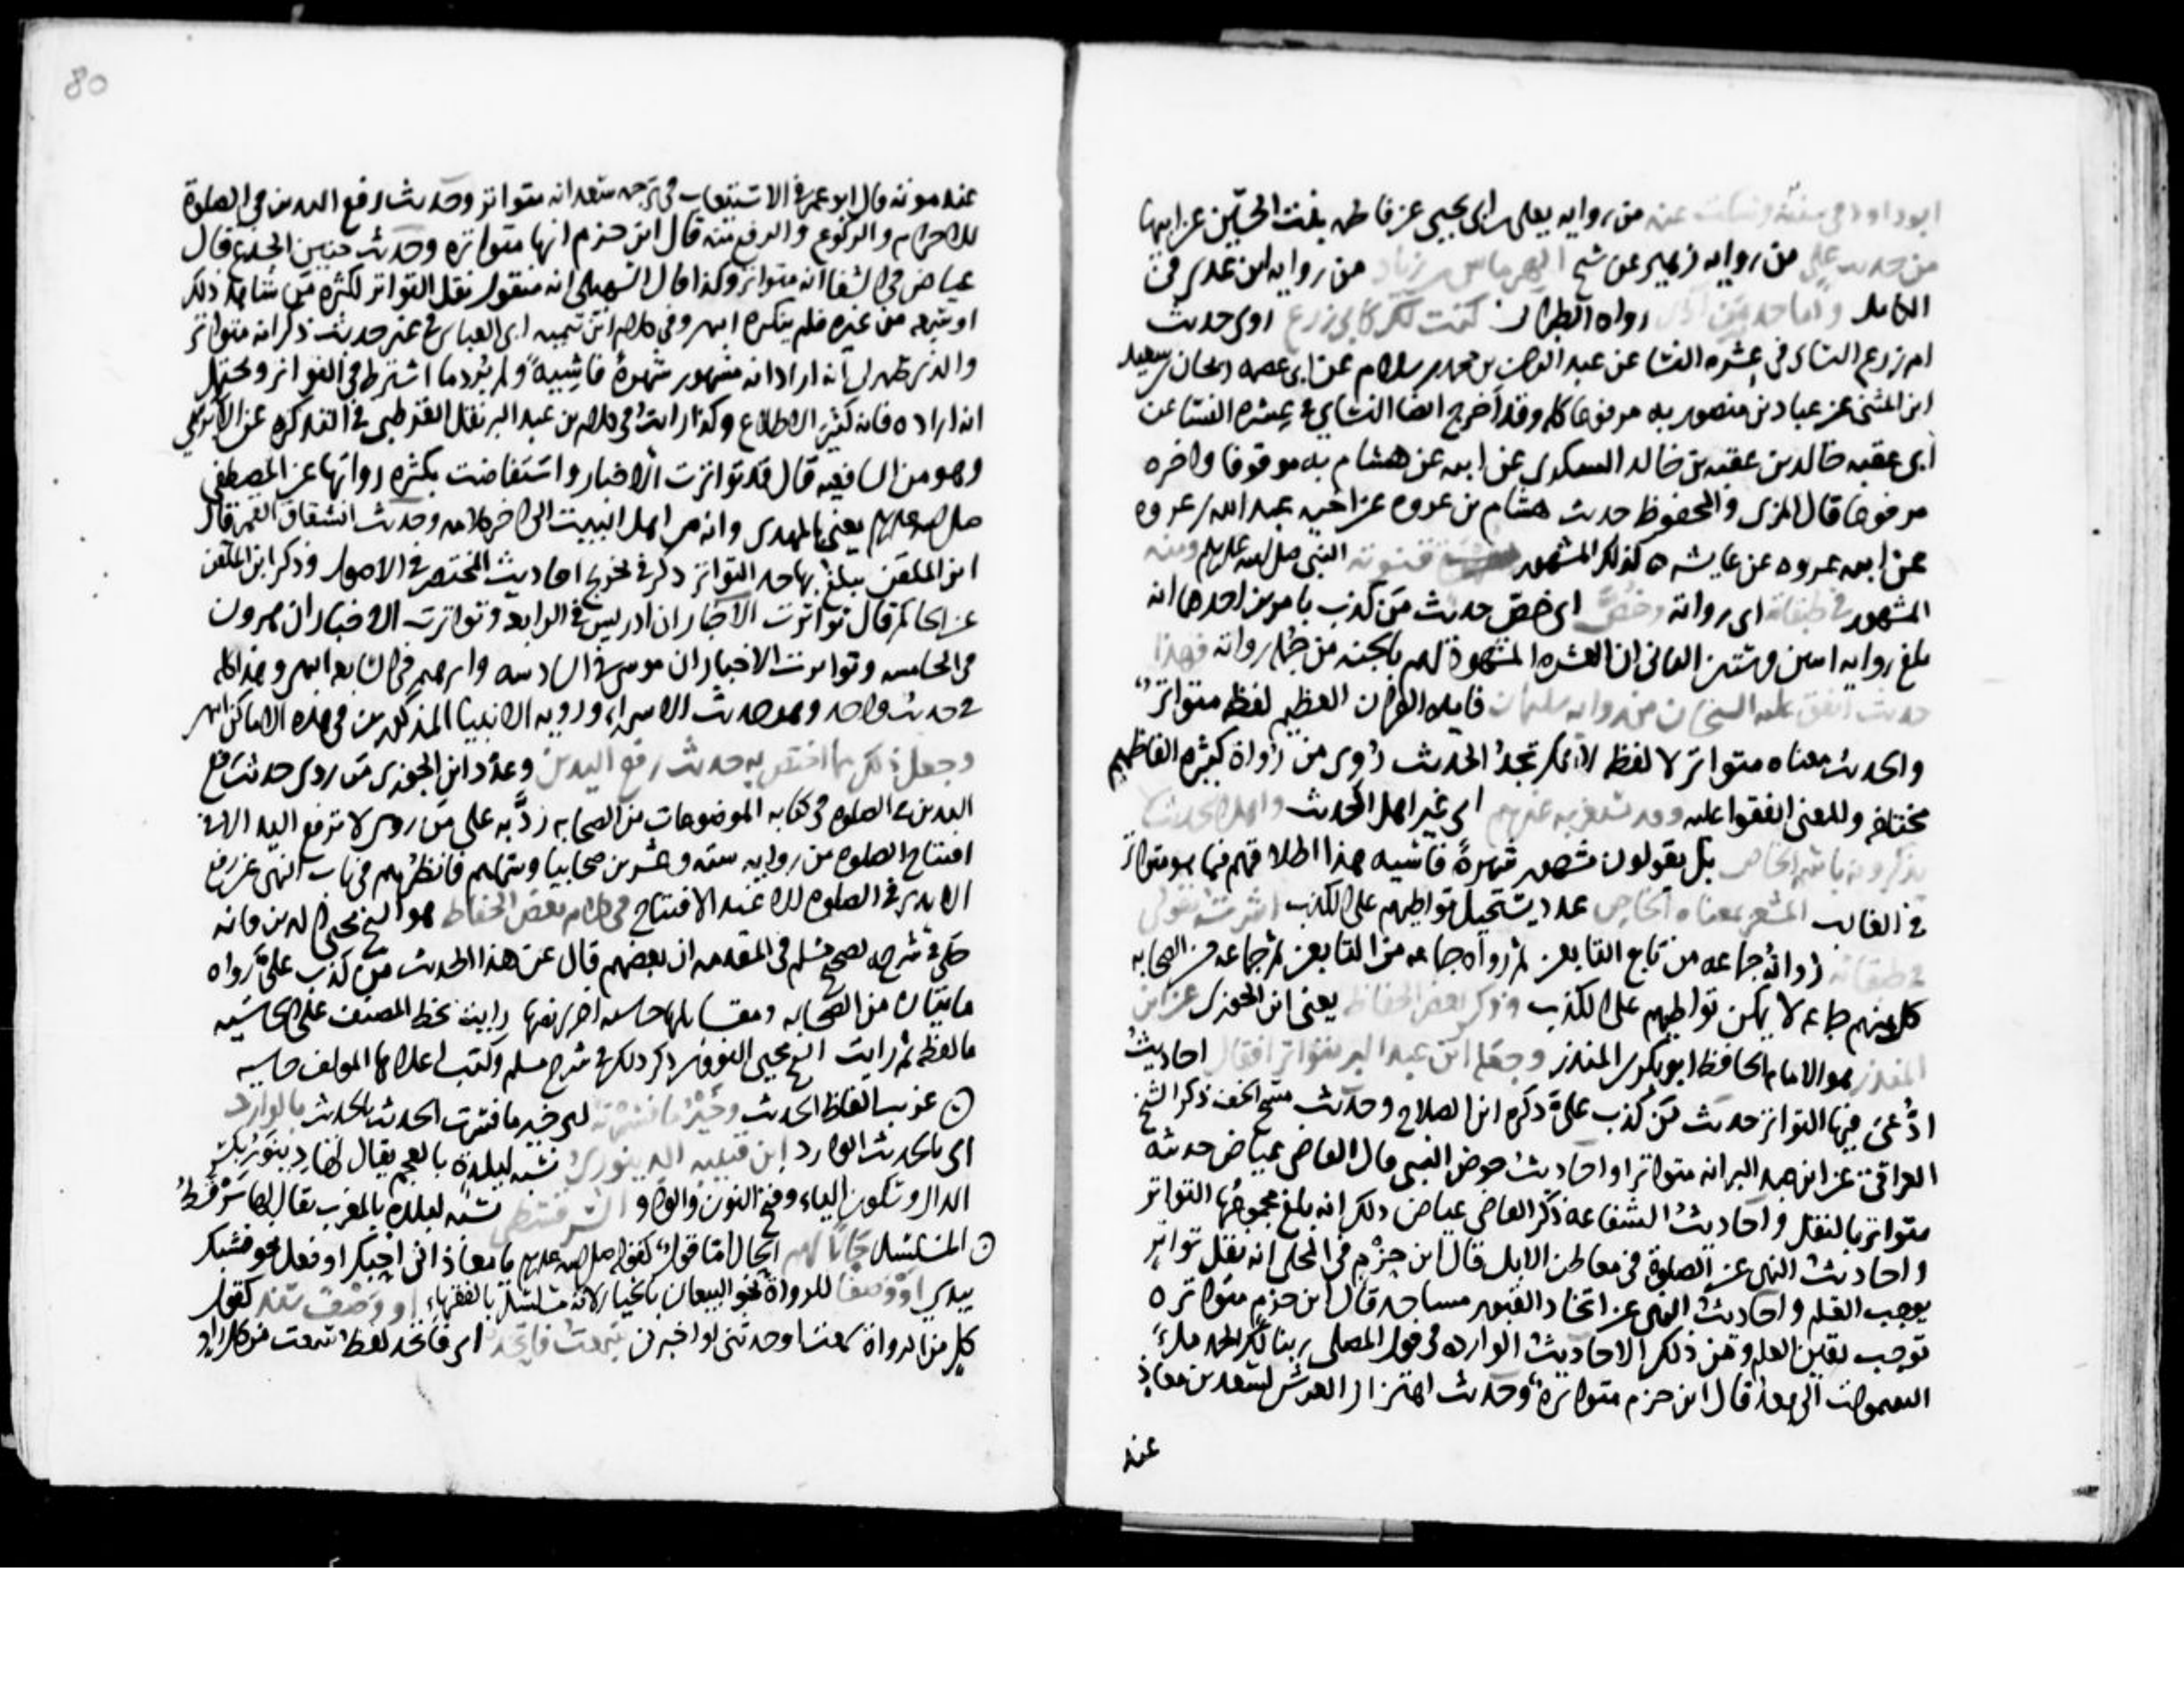 ابوداود في سننه وسكت عنه من رواية يعلى بن ابي يحيى عن فاطمه بنت الحسين عن ابيها
من حديث علي من رواية زهير عن شيخ الهرماس بن زياد من رواية ابن عدي في
الكامل واما حديث رواه الطبراني كنت لك كابي زرع اوي حديث
ام زرع النساي في عشره النسا عن عبد الرحمن بن محمد بن سلام عن ابي عصمه ريحان بن سعيد
ابن المثنى عن عباد بن منصور به مرفوعا كله وقد اخرج ايضا النساي في عشره النسا عن
ابي عقبه خالد بن عقبه بن خالد السكوي عن ابيه عن هشام به موقوفا واخره
مرفوعا قال المزي والمحفوظ حديث هشام بن عروه عن اخيه عبد الله بن عروه
عن ابيه عروه عن عايشه كذلك المشهور النبي صلى الله عليه وسلم ومنه
المشهور في طبقاته اي رواته وخص اي خص حديث من كذب بامرين احدهما انه
بلغ رواته اثنين وستين الثاني ان العشره المشهود لهم بالجنه من جمله رواته فهذا
حديث اتفق عليه الشيخان من رواية سليمان فايده القران العظيم لفظه متواتر
والحديث معناه متواتر لا لفظه لانك تجد الحديث روي من رواة كثيره الفاظهم
مختلفه والمعنى اتفقوا عليه عنهم اي غير اهل الحديث واهل الحديث
يذكرونه باسمه الخاص بل يقولون مشهور شهرة فاشيه هذا اطلاقهم فيما هو متواتر
في الغالب المشعر بمعناه الخاص عدد يستحيل تواطيهم على الكذب اشرت بقولي
في طبقاته رواته جماعه من تابع التابعين ثم رواه جماعه من التابعين ثم جماعه من الصحابه
كل منهم جماعه لا يمكن تواطيهم على الكذب وذكر بعض الحفاظ يعني ابن الجوزي عن ابن
المنذر هو الامام الحافظ ابو بكر بن المنذر وجعله ابن عبد البر متواترا فقال احاديث
ادعي فيها التواتر حديث من كذب علي ذكره ابن الصلاح وحديث مسح الخف ذكر الشيخ
العراقي عن ابن عبد البر انه متواترا واحاديث حوض النبي قال القاضي عياض حديثه
متواتر بالنقل واحاديث الشفاعه ذكر القاضي عياض ذلك انه بلغ مجموعها التواتر
واحاديث النهي عن الصلوة في معاطن الابل قال ابن حزم في المحلى انه نقل تواتر
يوجب العلم واحاديث النهي عن اتخاذ القبور مساجد قال ابن حزم متواتره
توجب يقين العلم ومن ذلك الاحاديث الوارده في قول المصلي ربنا لك الحمد ملء
السموات الى بعد قال ابن حزم متواتره وحديث اهتزاز العرش لسعد بن معاذ
عند
80
عند موته قال ابو عمر في الاستيعاب في ترجمه سعد انه متواتر وحديث رفع اليدين في الصلوة
للاحرام والركوع والرفع منه قال ابن حزم انها متواتره وحديث حنين الجذع قال
عياض في الشفا انه متواتر وكذا قال السهيلي انه منقول نقل التواتر لكثره من شاهد ذلك
او سمعه من غيره فلم ينكره انتهى وفي كلام ابن تيميه ابي العباس في غير حديث ذكر انه متواتر
والذي ظهر لي انه اراد انه مشهور شهرة فاشية ولم يرد ما اشترط في التواتر ويحتمل
انه اراده فانه كثير الاطلاع وكذا رايت في كلام بن عبد البر نقل القرطبي في التذكره عن
وهو من الشافعيه قال قد تواترت الاخبار واستفاضت بكثره رواتها عن المصطفى
صلى الله عليه وسلم يعني بالمهدي وانه من اهل البيت الى اخر كلامه وحديث انشقاق القمر قال
ابن الملقن يبلغ بها حد التواتر ذكر في تخريج احاديث المختصر في الاصول وذكر ابن الملقن
عن الحاكم قال تواترت الاخبار ان ادريس في الرابعه وتواترت الاخبار ان هرون
في الخامسه وتواترت الاخبار ان موسى في السادسه وابرهيم في السابعه انتهى وهذا كله
في حديث واحد وهو حديث الاسراء ورويه الانبيا المذكورين في هذه الاماكن انتهى
وجعل ذلك مما اختص به حديث رفع اليدين وعدد ابن الجوزي من روى حديث رفع
اليدين في الصلوه في كتابه الموضوعات من الصحابه رد به على من روى لا ترفع اليد الا في
افتتاح الصلوه من رواية سته وعشرين صحابيا وسماهم فانظرهم في باب النهي عن رفع
الايدي في الصلوه الا عند الافتتاح في كلام بعض الحفاظ هو الشيخ محيي الدين فانه
حكى في شرحه لصحيح مسلم في المقدمه ان بعضهم قال عن هذا الحديث من كذب علي رواه
مايتان من الصحابه ومقابلها حاشيه اخرى نصها رايت بخط المصنف على الحاشيه
ما لفظه ثم رايت الشيخ محيي النووي ذكر ذلك في شرح مسلم وكتب اعلاها المولف حاشيه
غريب الفاظ الحديث وخير ما فسرته اي خير ما فسرت الحديث بالحديث بالوارد
اي بالحديث الوارد ابن قتيبه الدينوري نسبه لبلدة بالعجم يقال لها دينور بكسر
الدال وسكون الياء وفتح النون والواو السرقسطي نسبه لبلدة بالمغرب يقال لها سرقسط
المسلسل حالا لهم الحال اما قولا كقوله صلى الله عليه وسلم يا معاذ اني احبك او فعل نحو شبك
بيدي او وصفا للرواة نحو البيعان بالخيار لانه متسلسل بالفقهاء او وصف سند كقول
كل من الرواة سمعت او حدثني او اخبرني سمعت فاتحد اي فاتحد لفظ سمعت من كل راو